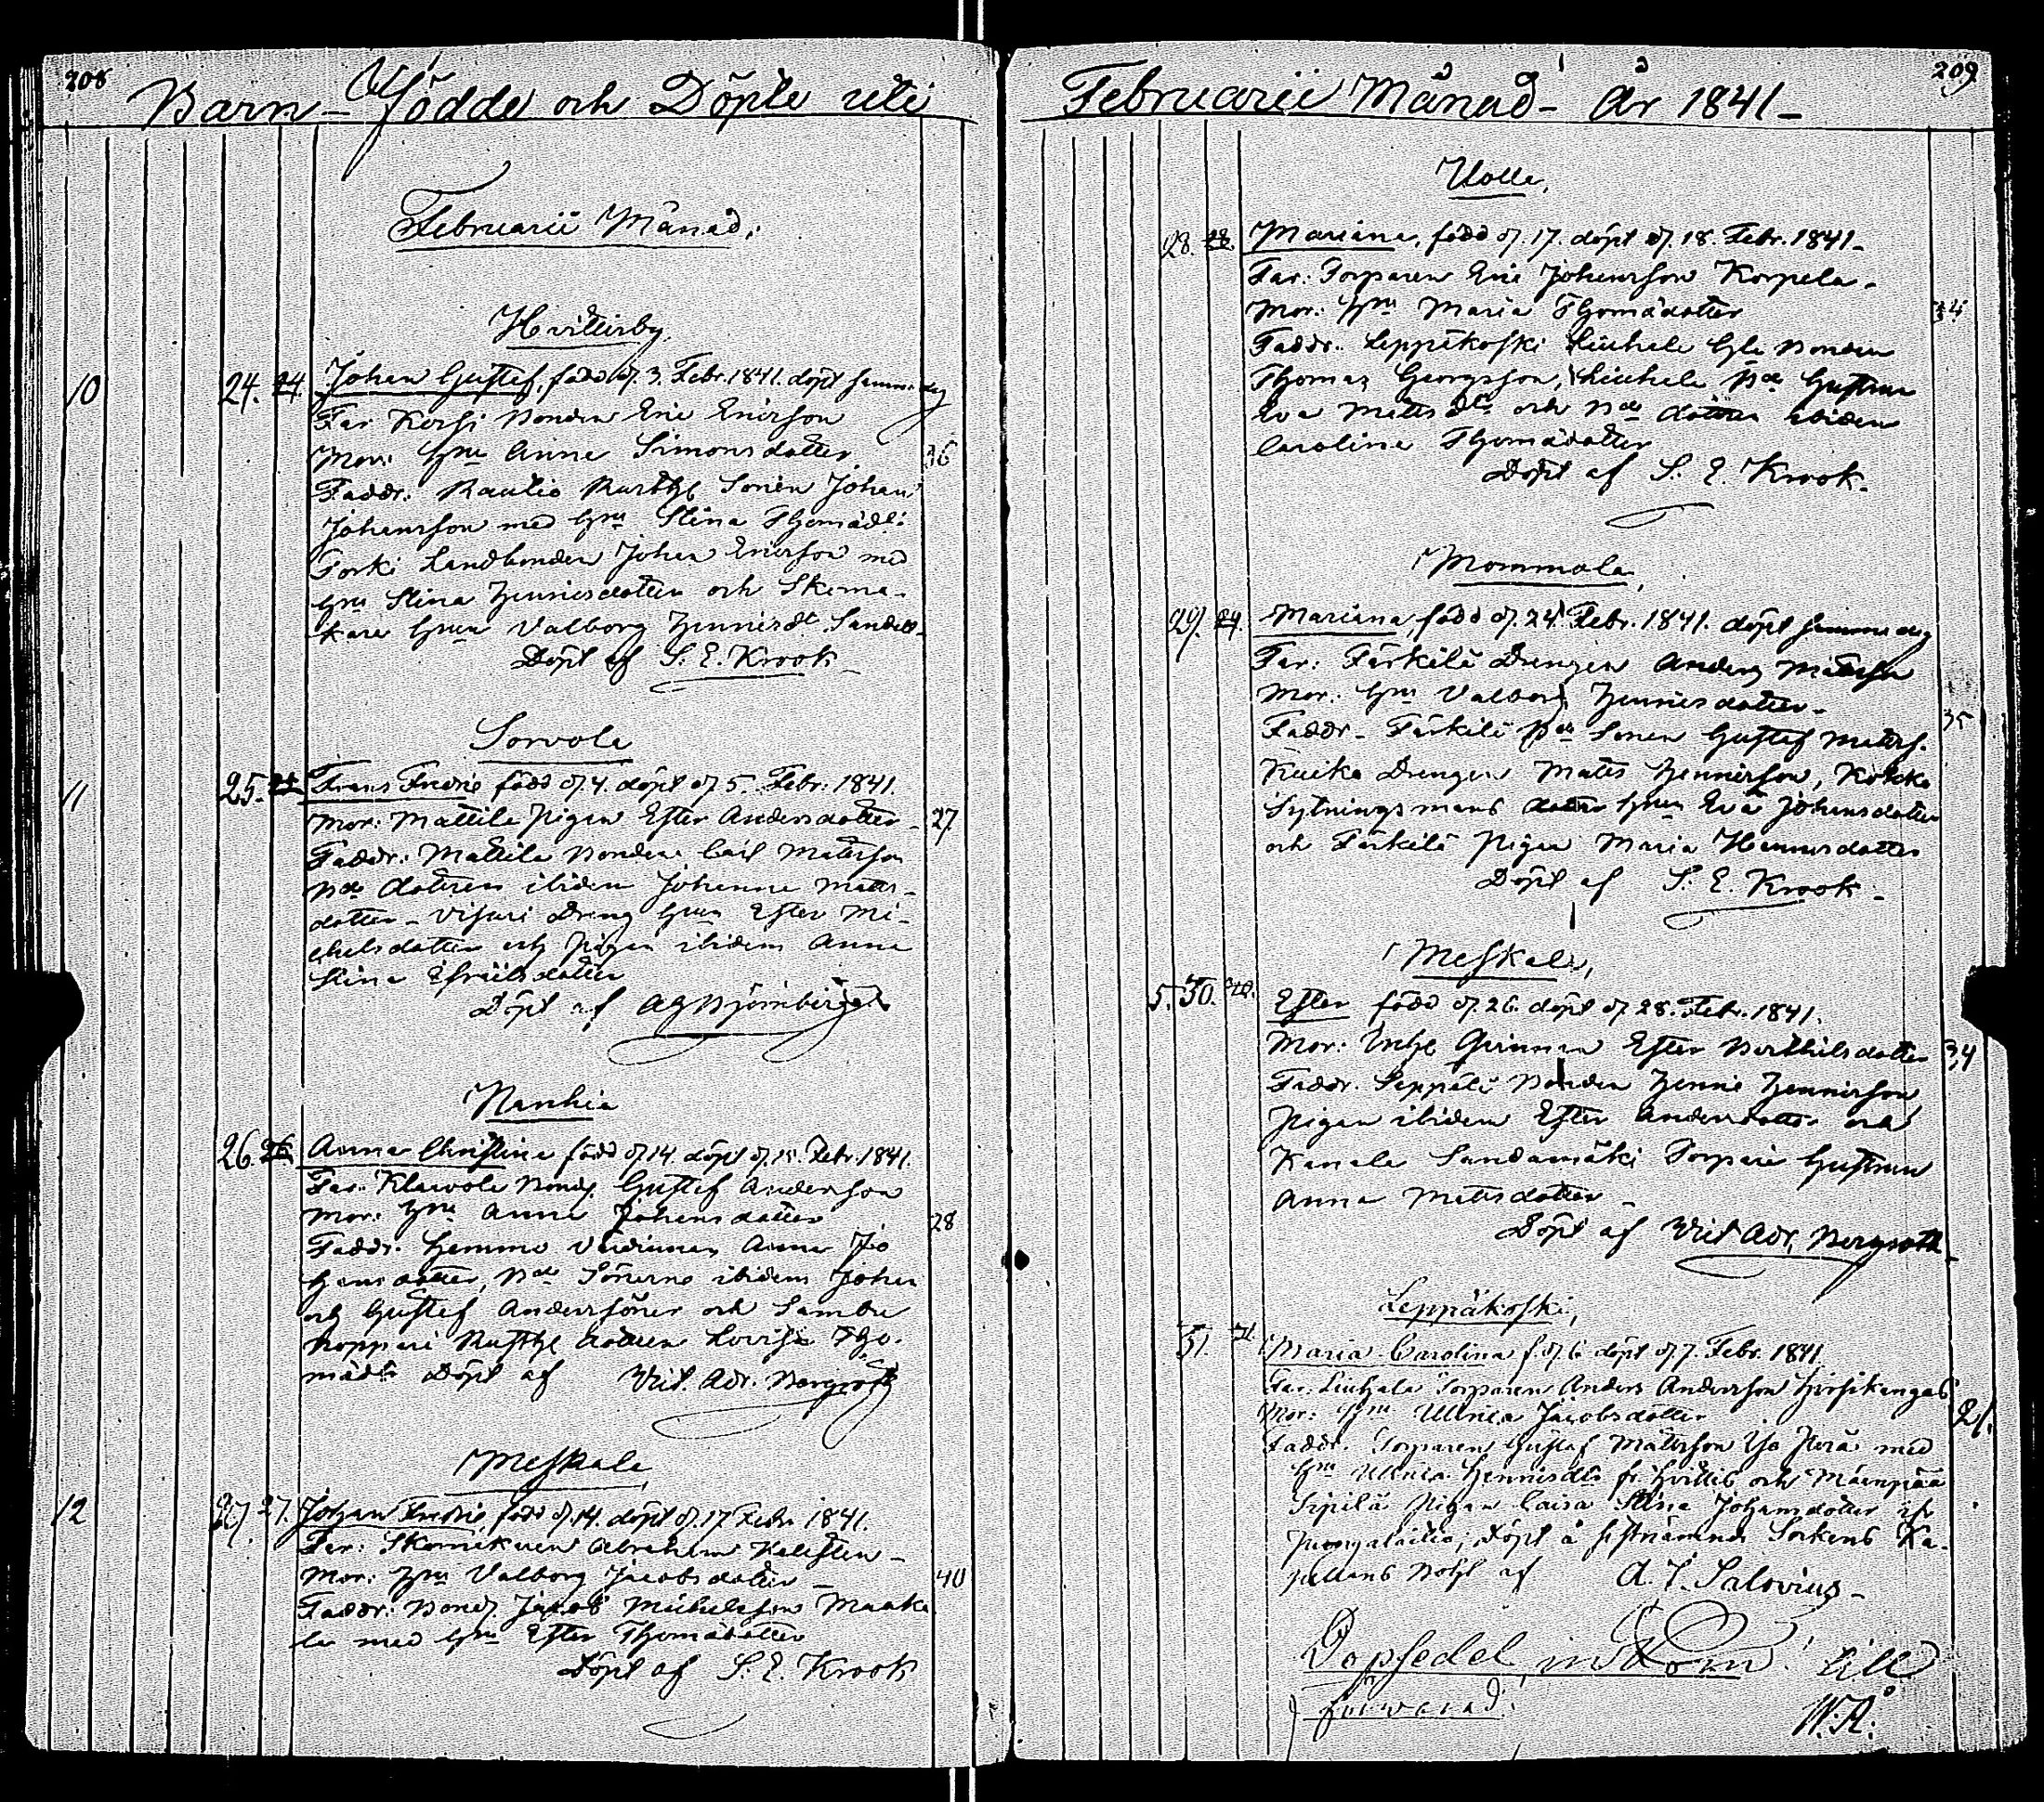 208
Barn - Födde och Döpte uti
Februarii Månad.
Hvittisby
10 24. 24. Johan Gustaf, född d. 3. Febr. 1841. döpt samma dag
Far Kersi Bonden Eric Ericsson
Mor: Hu Anna Simonsdotter 36
Faddr: Rautio Rusth Sonen Johan
Johansson med Hu Stina Thomädr
Torki Landbonden Johan Ericsson med
Hu Stina Hennicsdotter och Skoma-
kare Hu Valborg Hennicsdr
Döpt af S. E. Krook
Sorvola
11 25. Frans Fredric född d. 4. döpt d. 5. Febr: 1841.
Mor: Mattila Pigan Ester Andersdotter 27
Faddr: Mattila Bonden Carl Matsson
dottren ibidem Johanna Matts-
dotter - Visari Dreng Hu Ester Mi-
chelsdotter och Pigan ibidem Anna
Stina Israelsdotter
Döpt af AG Björnberg
Nanhia
26. 26. Anna Christina född d. 14. döpt d. 15. Febr. 1841.
Far: Klavola Bond. Gustaf Andersson
Mor: Hu Anna Johansdotter 28
Faddr. Hemmo Anna Jo
hansdotter, Sönerne ibidem Johan
och Gustaf Anderssöner och Sambu
Rusth dottren Lovisa Tho-
mädr Döpt af Vict. Adr. Bergroth
Meskala
12 27. 27. Johan Fredric, född d. 14. döpt d. 17 Febr. 1841.
Far: Skomakaren Abraham
Mor: Hu Valborg Jacobsdotter 40
Faddr: Bond. Jacob Michelsson Maaka
la med Hu Ester Thomädotter
Döpt af S. E. Krook
209
Februarii Månad - År 1841 -
Uolla,
28. 28. Mariana, född d. 17. döpt d. 18. Febr. 1841.
Far: Torparen Eric Johansson Korpela.
Mor: Hu Maria Thomädotter 34
Faddr: Leppäkoski Liuhala Bonden
Thomas Georgsson, Liuhala Hustrun
Eva Mattsdr och dottren ibidem
Carolina Thomädotter
Döpt af S. E. Krook.
Mommola,
29. 29. Mariana, född d. 24 Febr. 1841. döpt samma dag
Far: Färkilä Drengen Anders Matsson
Mor: Hu Valborg Hennicsdotter.
Faddr - Färkilä Sonen Gustaf Matss. 35
Kuika Drengen Matts Hennicsson, Kokko
Sytningsmans dotter Hu Eva Johansdotter
och Färkilä Pigan Maria Hennicsdotter
Döpt af S. E. Krook -
Meskala,
5. 30. Ester född d. 26. döpt d. 28. Febr. 1841.
Mor: Inhs Qvinnan Ester Berthilsdotter 34
Faddr. Seppälä Bonden Hennic Hennicsson
Pigan ibidem Ester Andersdotter och
Kanala Sandamäki Torpare Hustrun
Anna Mattsdotter
Döpt af Vict Adr, Bergroth
Leppäkoski,
31. Maria Carolina f. d. 6 döpt d. 7. Febr. 1841.
Far: Liuhala Torparen Anders Andersson Hirsikangas
Mor: Hu Ulrica Jacobsdotter 21.
Faddr. Torparen Gustaf Matsson Iso Perä med
Hu Ulrica Hennicsdr fr. Hvittis och Mäenpää
Sipilä Pigan Caisa Stina Johansdotter ifr
Pungalaitio; Döpt å sistnämnde Sockens Ka-
pellans Bohl af A. J. Salovius -
Dopsedel till
förvarad.